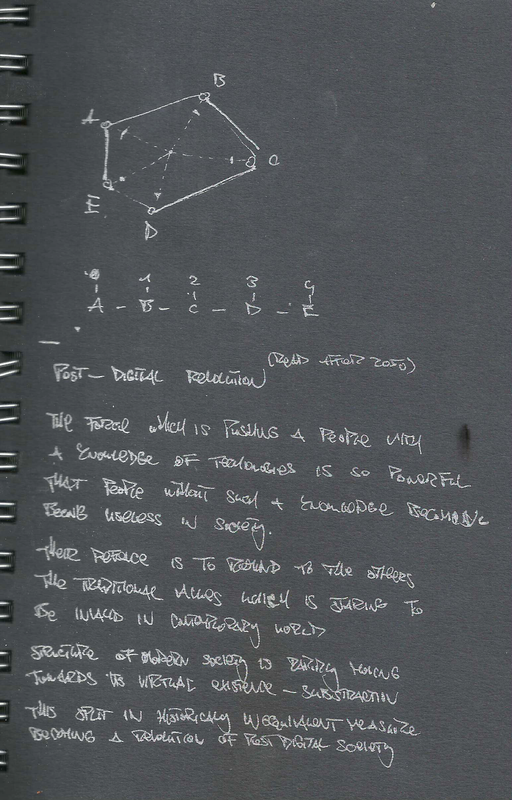 B
A
C
E
D
0 1 2 3 4
A - B - C - D - E
(READ AFTER 2050)
POST - DIGITAL REVOLUTION
THE FORCE WHICH IS PUSHING A PEOPLE WITH
A KNOWLEDGE OF TECHNOLOGIES IS SO POWERFUL
THAT PEOPLE WITHOUT SUCH A KNOWLEDGE BECOMING
BEING USELESS IN SOCIETY.
THEIR IS TO TO THE OTHERS
THE TRADITIONAL VALUES WHICH IS TO
BE INVALID IN CONTEMPORARY WORLD
STRUCTURE OF MODERN SOCIETY IS MOVING
TOWARDS ITS VIRTUAL EXISTENCE - SUBSTRACTION
THIS SPLIT IN HISTORICALLY MEASURE
BECOMING A REVOLUTION OF POST DIGITAL SOCIETY